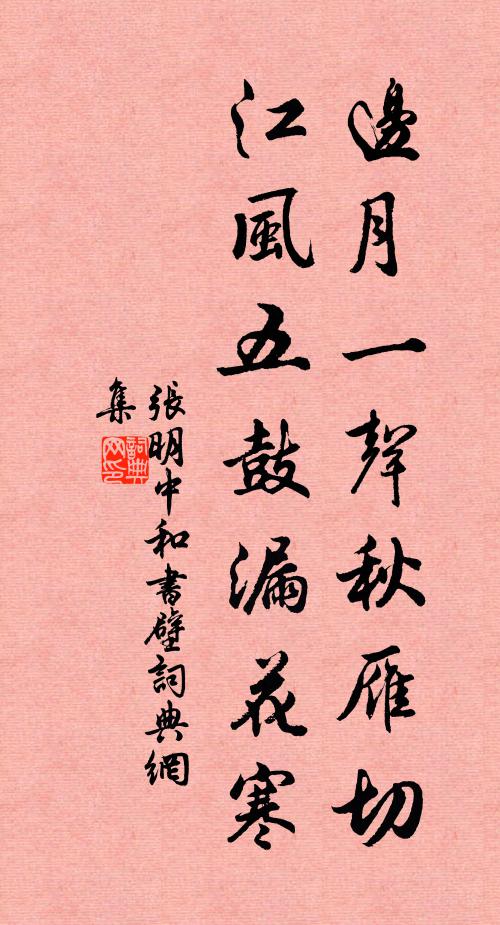 邊月一聲秋雁切
江風五鼓漏花寒
張明中和書壁詞典網
集
詞典網印